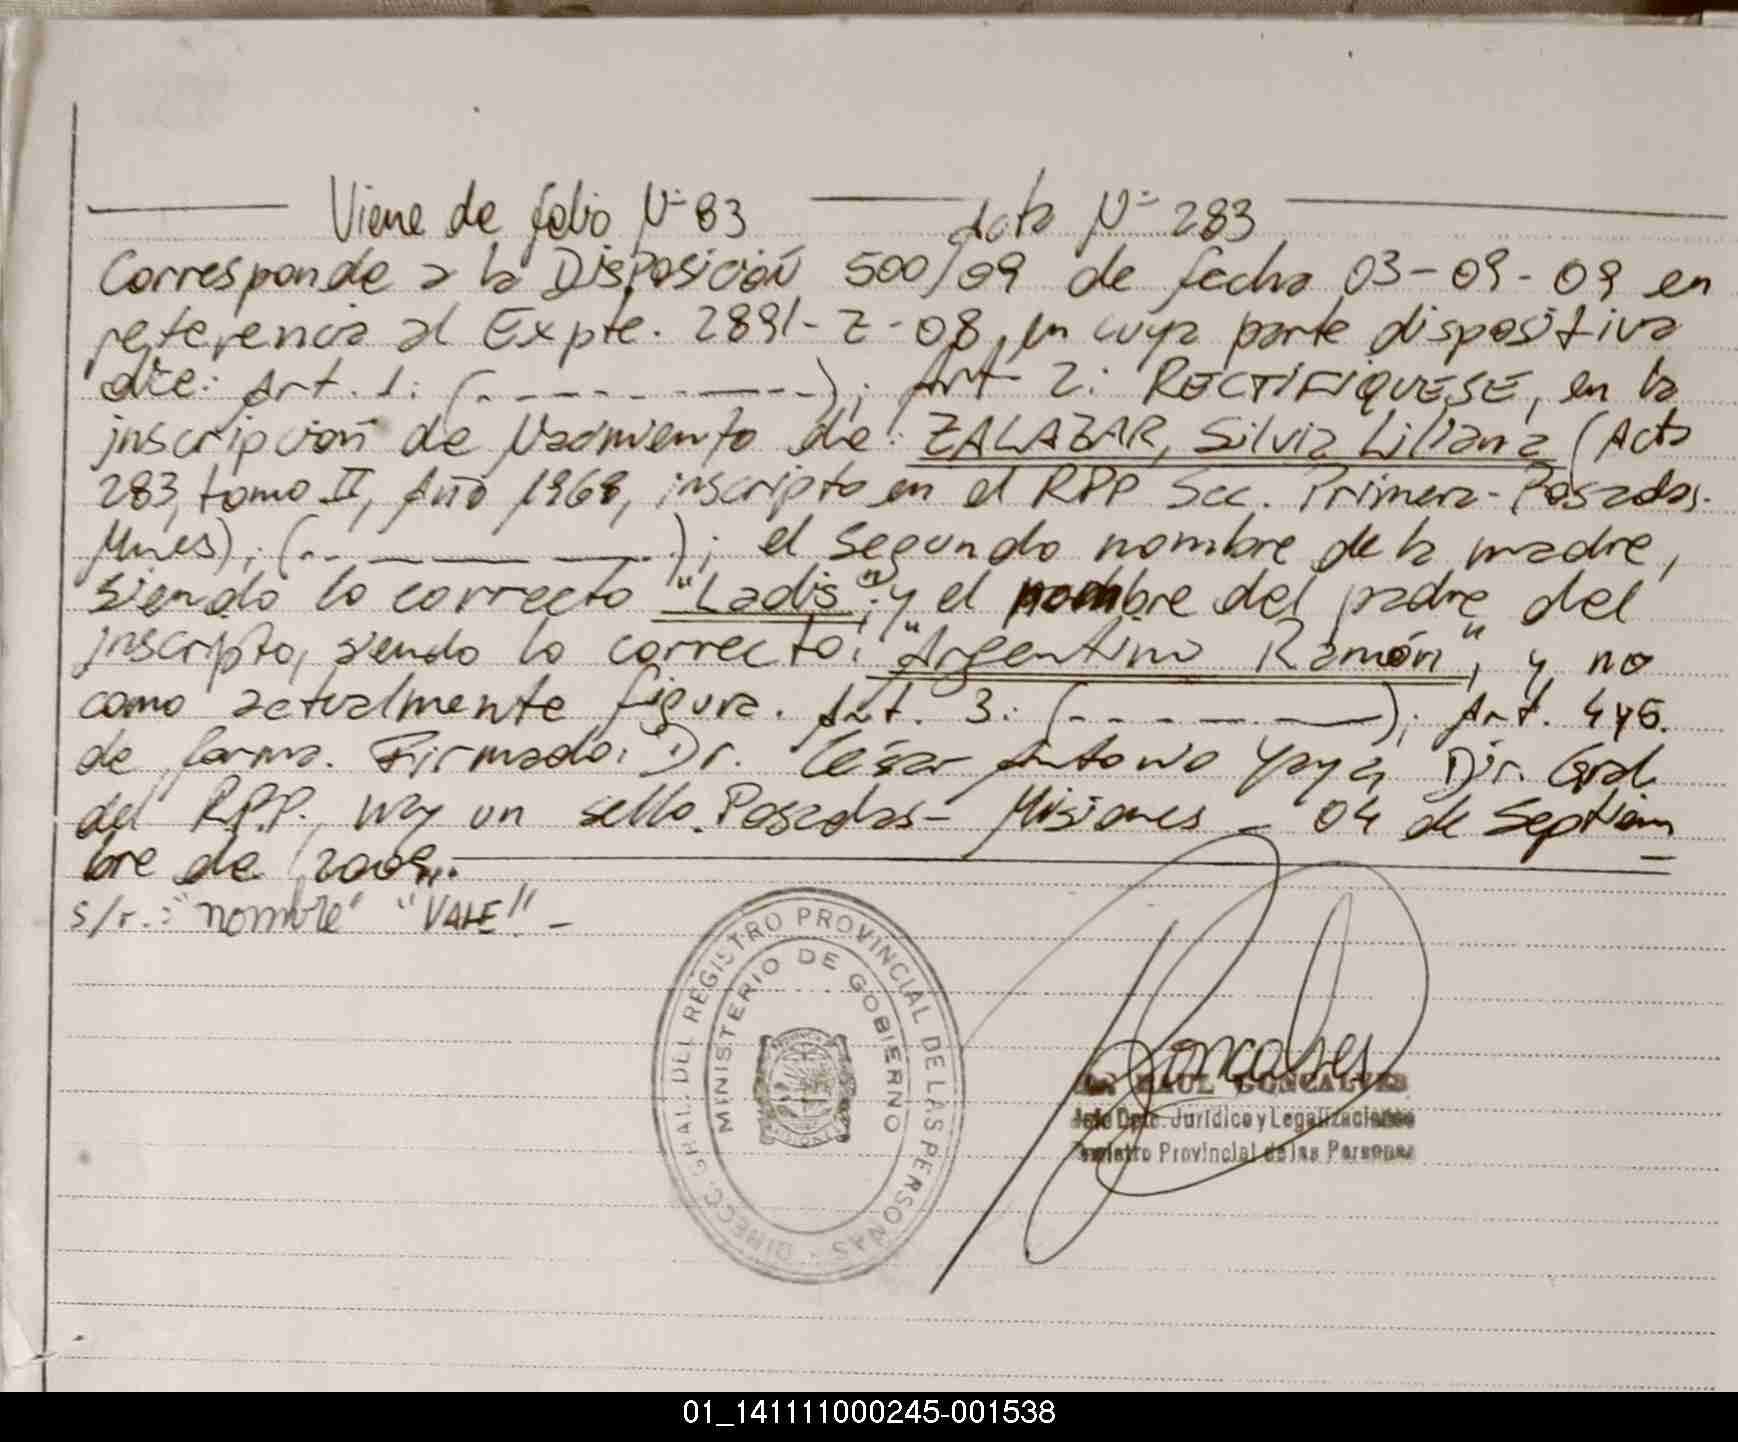 Viene de folio Nº 83 Acta Nº 283
Corresponde a la Disposición 500/09 de fecha 03-09-09 en
referencia al Expte. 2891-Z-08, en cuya parte dispositiva
dice: Art. 1: (- - - - - - - - -); Art. 2: RECTIFIQUESE, en la
inscripción de Nacimiento de: ZALAZAR, Silvia Liliana (Acta
283, tomo II, Año 1968, inscripto en el RPP Sec. Primera-Posadas.
Mnes); (- - - - -); el Segundo nombre de la madre,
siendo lo correcto "Ladis"; y el nombre del padre del
inscripto, siendo lo correcto: "Argentino Ramón", y no
como actualmente figura. Art. 3: (- - - - - -); Art. 4 y 5.
de forma. Firmado: Dr. César Antonio Yaya, Dir. Gral.
del R.P.P., hay un sello. Posadas- Misiones - 04 de Septiem
bre de 2009.-
s/r.: "nombre" "VALE" -
DIRECC. GRAL. DEL REGISTRO PROVINCIAL DE LAS PERSONAS
MINISTERIO DE GOBIERNO
Goncalves
RAUL GONCALVES
Jefe Dpto. Jurídico y Legalizaciones
Registro Provincial de las Personas
01_141111000245-001538